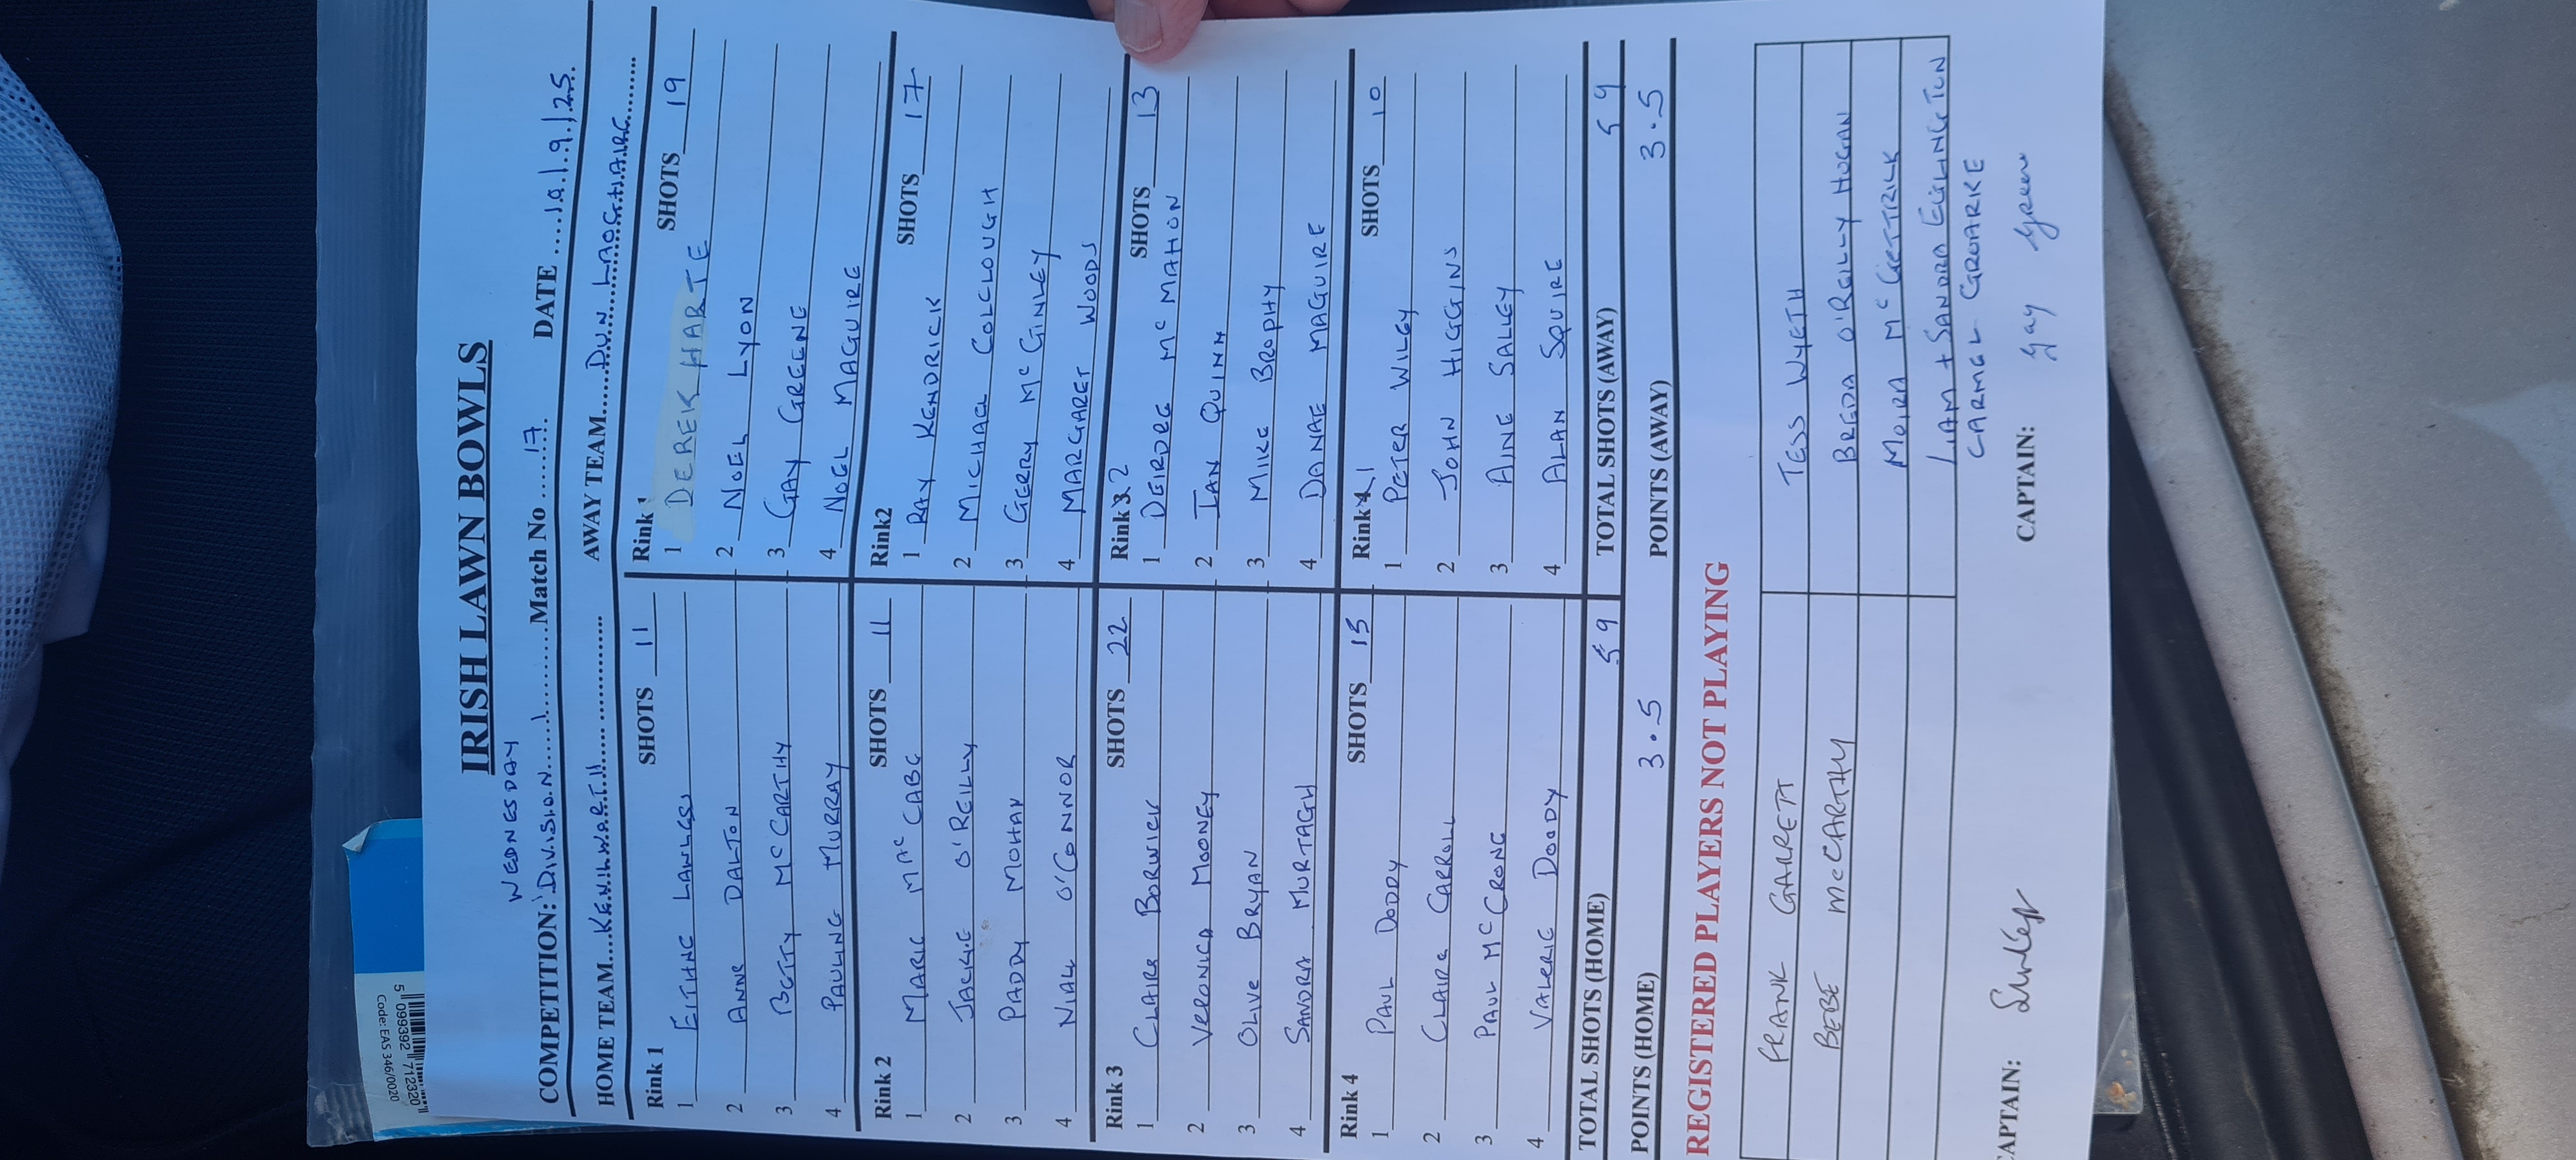 IRISH LAWN BOWLS
WEDNESDAY
COMPETITION: DIVISION 1 Match No 17 DATE
HOME TEAM KENILWORTH AWAY TEAM DUN LAOGHAIRE
Rink 1 SHOTS 11
1 EITHNE LAWLESS
2 ANNE DALTON
3 BETTY McCARTHY
4 PAULINE MURRAY
Rink 1 SHOTS 19
1 DEREK HARTE
2 NOEL LYON
3 GAY GREENE
4 NOEL MAGUIRE
Rink 2 SHOTS 11
1 MARIE MacCABE
2 JACKIE O'REILLY
3 PADDY MOHAN
4 NIALL O'CONNOR
Rink2 SHOTS 17
1 RAY KENDRICK
2 MICHAEL COLCLOUGH
3 GERRY McGINLEY
4 MARGARET WOODS
Rink 3 SHOTS 22
1 CLAIRE BORWICK
2 VERONICA MOONEY
3 OLIVE BRYAN
4 SANDRA MURTAGH
Rink 3 2 SHOTS 13
1 DEIRDRE McMAHON
2 IAN QUINN
3 MIKE BROPHY
4 DANAE MAGUIRE
Rink 4 SHOTS 15
1 PAUL DODDY
2 CLAIRE CARROLL
3 PAUL McCRONE
4 VALERIE DOODY
Rink 4 1 SHOTS 10
1 PETER WILEY
2 JOHN HIGGINS
3 AINE SALLEY
4 ALAN SQUIRE
TOTAL SHOTS (HOME) 59 TOTAL SHOTS (AWAY) 59
POINTS (HOME) 3.5 POINTS (AWAY) 3.5
REGISTERED PLAYERS NOT PLAYING
FRANK GARRETT TESS WYETH
BEBE McCARTHY BREDA O'REILLY HOGAN
MOIRA McGETTRICK
LIAM + SANDRA EGLINGTON
CARMEL GROARKE
CAPTAIN: CAPTAIN: Gay Greene
5 099392 712320
Code: EAS 3346/0020